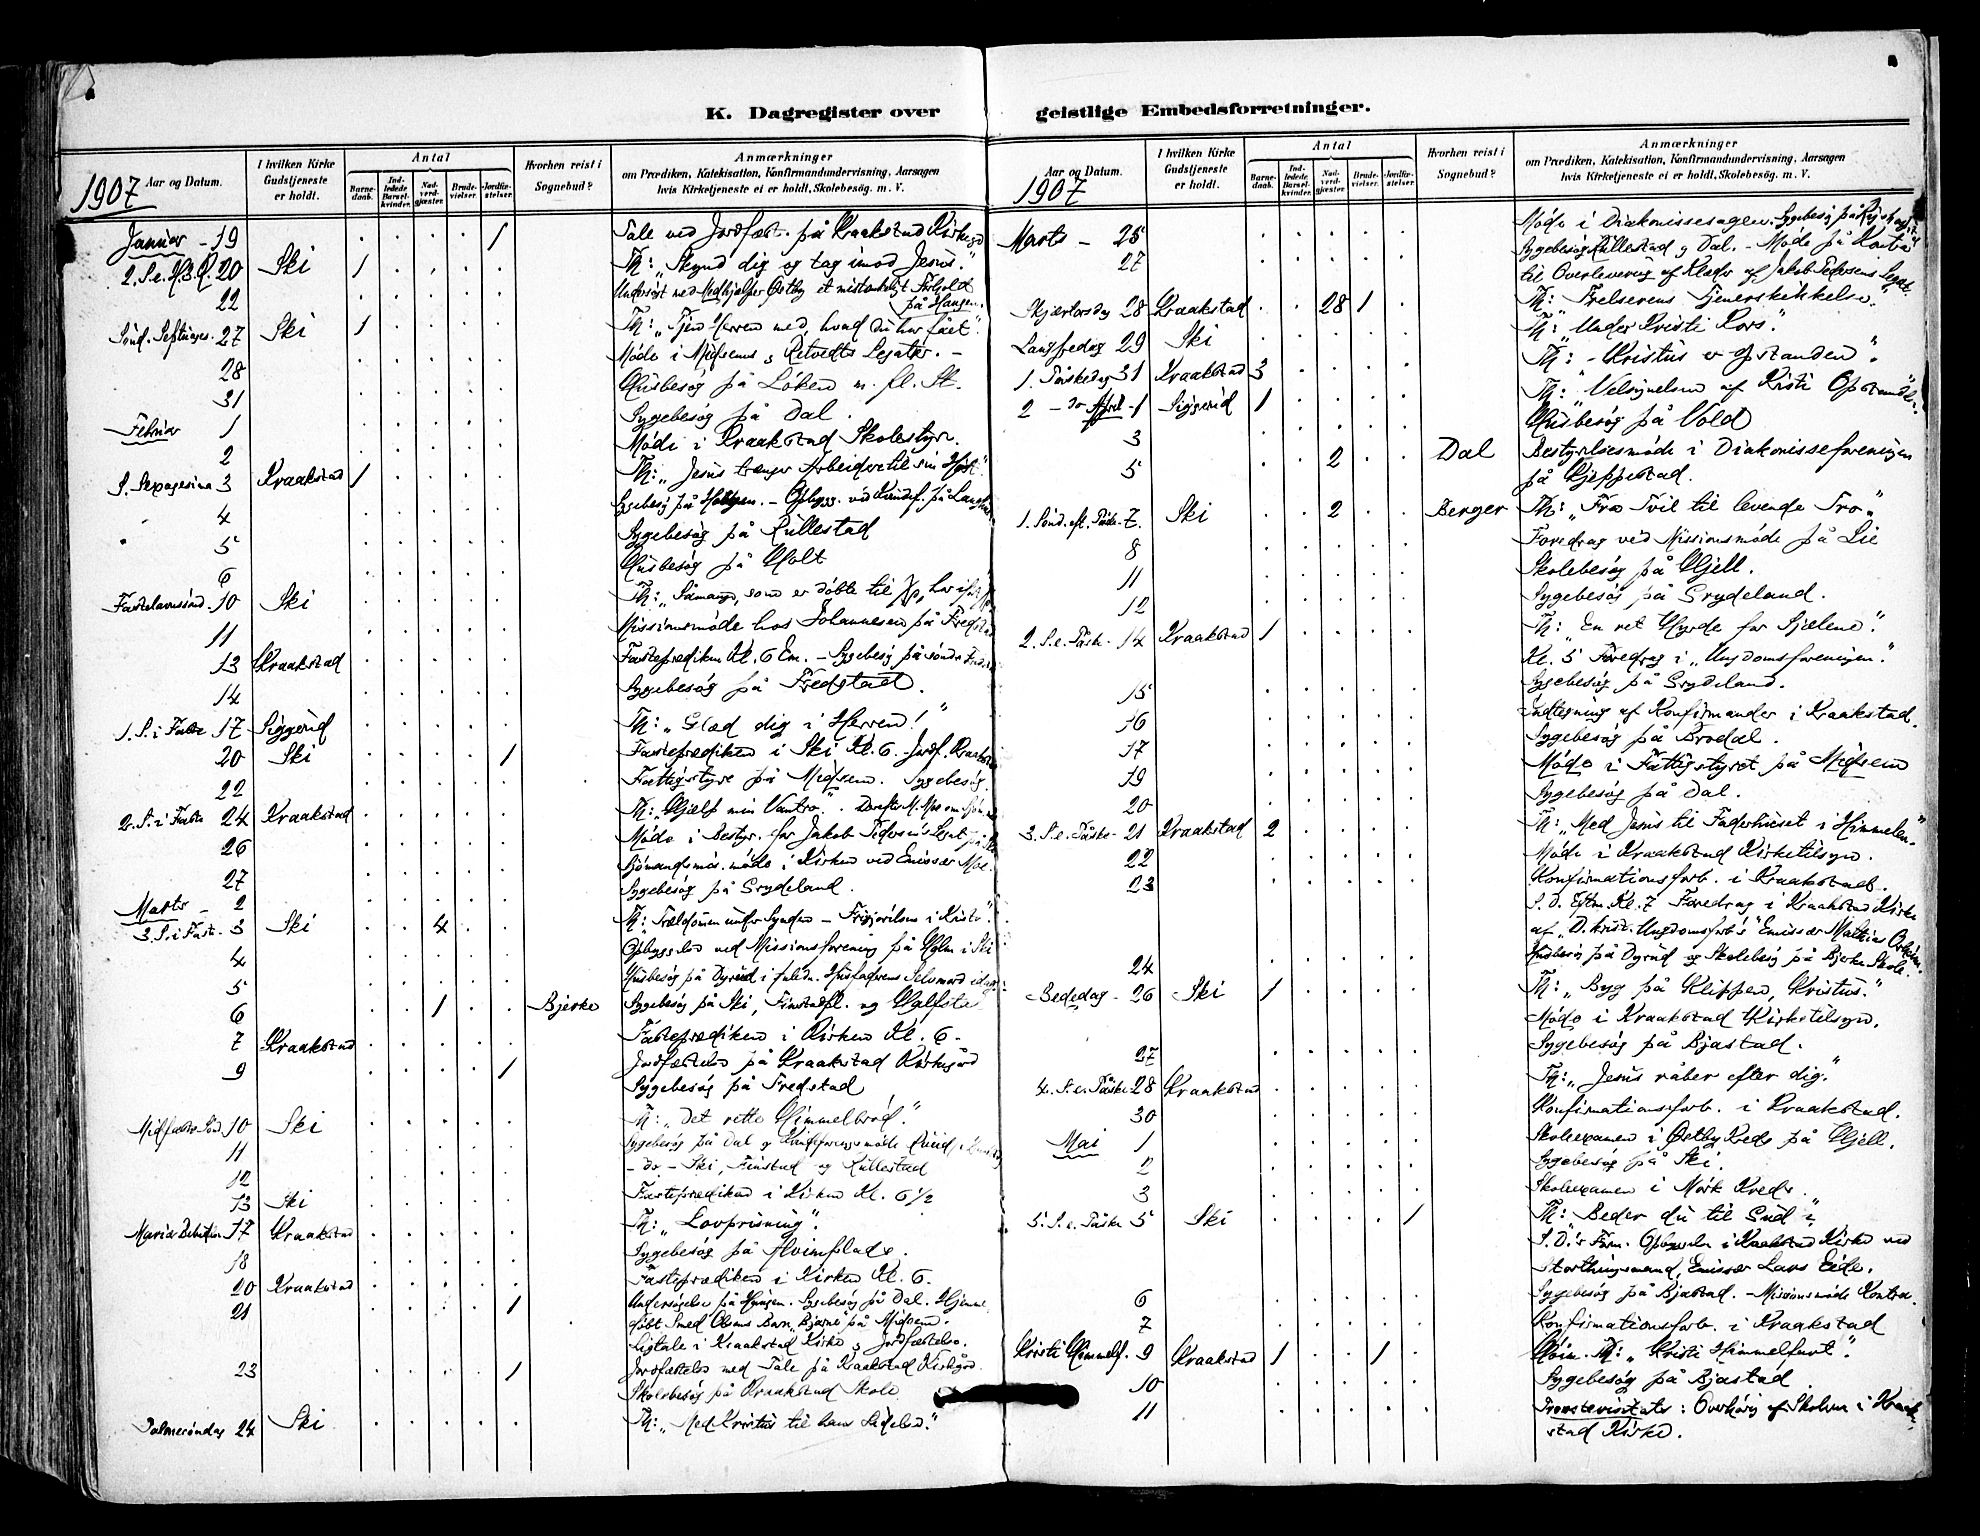 K. Dagregister over
Aar og Datum.
I hvilken Kirke Gudstjeneste er holdt.
Antal
Barnedaab.
Indledede Barselkvinder.
Nadverdgjæster.
Brudevielser.
Jordfæstelser.
Hvorhen reist i Sognebud?
Anmærkninger
om Prædiken, Katekisation, Konfirmandundervisning, Aarsagen
hvis Kirketjeneste ei er holdt, Skolebesøg. m. V.
1907
Januar - 19 1 Tale ved Jordfæst. på Kraakstad Kirkegd
2. S. e. H.3.K. 20 Ski 1 Th: „Skynd dig og tag imod Jesus."
22 Undersøgt med Medhjælper Østby et mistænkeligt Forhold
på Haugen.
Sønd. Septuages. 27 Ski 1 Th: „Tjen Herren med, hvad du har fået".
28 Møde i Midsems og Retvedts Legater. -
31 Husbesøg på Løken m. fl. St.
Februar 1 Sygebesøg på Dal.
2 Møde i Kraakstad Skolestyre.
S. Sexagesima 3 Kraakstad 1 Th: „Jesus trænger Arbeidere til sin Høst"
4 Sygebesøg på - Opbygg. ved Kvindef. på
5 Sygebesøg på Rullestad
6 Husbesøg på Holt
Fastelavnssønd. 10 Ski Th: „Såmange, som er døbte til
11 Missionsmøde hos Johannesen på Fredstad
13 Kraakstad Fasteprædiken Kl. 6 Em. - Sygebesøg på søndre
14 Sygebesøg på Fredstad.
1. S. i Faste 17 Siggerud Th: „Glæd dig i Herren!"
20 Ski 1 Fasteprædiken i Ski Kl. 6. - Jordf. Kraakstad
22 Fattigstyre på Midsem. Sygebesøg.
2. S. i Faste 24 Kraakstad Th: „Hjælp min Vantro".
26 Møde i Bestyr. for Jakob Pedersens Legat på
27 Sjømandsmis. møde i Kirken ved Emissær Moe.
Marts - 2 Sygebesøg på Grydeland.
3. S. i Fast. 3 Ski 4 Th: Trældommen under Synden - Frigjørelsen i Kristo".
4 Opbyggelse ved Missionsforening på Holm i Ski
5 Husbesøg på Dyrud i
6 1 Bjerke Sygebesøg på Ski, Finstadpl. og
7 Kraakstad Fasteprædiken i Kirken Kl. 6.
9 1 Jordfæstelse på Kraakstad Kirkegård
Sygebesøg på Fredstad
Midfaste Sønd. 10 Ski Th: „Det rette Himmelbrød."
11 Sygebesøg på Dal og Kvindeforeningsmøde
12 - do - Ski, Finstad og Rullestad
13 Ski Fasteprædiken i Kirken Kl. 6 1/2
Mariæ Bebudelse 17 Kraakstad Th: „Lovprisning".
18 Sygebesøg på
20 Kraakstad Fasteprædiken i Kirken Kl. 6.
21 1 Undersøgelse på Haugen. Sygebesøg på Dal. Hjemme
døbt Smed Olsens Barn „Bjarne" på Midsem.
Ligtale i Kraakstad Kirke og Jordfæstelse.
23 1 Jordfæstelse med Tale på Kraakstad Kirkegård.
Skolebesøg på Kraakstad Skole
Palmesøndag 24 Ski Th: „Med Kristus til hans Lidelse."
geistlige Embedsforretninger.
Aar og Datum.
I hvilken Kirke Gudstjeneste er holdt.
Antal
Barnedaab.
Indledede Barselkvinder.
Nadverdgjæster.
Brudevielser.
Jordfæstelser.
Hvorhen reist i Sognebud?
Anmærkninger
om Prædiken, Katekisation, Konfirmandundervisning, Aarsagen
hvis Kirketjeneste ei er holdt, Skolebesøg. m. V.
1907
Marts - 25 Møde i Diakonissesagen. Sygebesøg på
27 Sygebesøg Rullestad og Dal. - Møde på
til Overlevering af Klæder af Jakob Pedersens Legat.
Skjærtorsdag 28 Kraakstad 28 1 Th: Frelserens Tjenerskikkelse."
Langfredag 29 Ski Th: „Under Kristi Kors".
1. Påskedag 31 Kraakstad 3 Th: - Kristus er opstanden".
2 - do April - 1 Siggerud 1 Th: „Velsignelsen af Kristi Opstandelse.
3 Husbesøg på Vold
5 2 Dal Bestyrelsesmøde i Diakonisseforeningen
på Gjeppestad.
1. Sønd. eft. Påske 7. Ski 2 Berger Th: „Fra Tvil til levende Tro"
8 Foredrag ved Missionsmøde på Lie
11 Skolebesøg på Hjell.
12 Sygebesøg på Grydeland.
2. S. e. Påsk. 14 Kraakstad 1 Th: „En ret Hyrde for Sjælene".
Kl. 5 Foredrag i „Ungdomsforeningen."
15 Sygebesøg på Grydeland.
16 Indtegning af Konfirmander i Kraakstad.
17 Sygebesøg på Brodal.
19 Møde i Fattigstyret på Midsem
20 Sygebesøg på Dal.
3. S. e. Påske - 21 Kraakstad 2 Th: „Med Jesus til Faderhuset i Himmelen."
22 Møde i Kraakstad Kirketilsyn.
23 Konfirmationsforb. i Kraakstad.
S. D. Eftm. Kl. 7 Foredrag i Kraakstad Kirke
af „D. krist. Ungdomsforb's" Emissær Mathias
24 Husbesøg på Dyrud og Skolebesøg på Bjerke Skole.
Bededag - 26 Ski 1 Th: „Byg på Klippen, Kristus."
Møde i Kraakstad Kirketilsyn.
27 Sygebesøg på Bjastad.
4. S. e. Påske 28 Kraakstad Th: „Jesus råber efter dig."
30 Konfirmationsforb. i Kraakstad.
Mai 1 Skoleexamen i Østby Kreds på Hjell.
2 Sygebesøg på Ski.
3 Skoleexamen i Mørk Kreds.
5. S. e. Påske 5 Ski 1 Th: Beder du til Gud"
S. D.'s Form. Opbyggelse i Kraakstad Kirke ved
Storthingsmand, Emissær Lars Eide.
6 Sygebesøg på Bjastad. - Missionsmøde Kontra.
7 Konfirmationsforb. i Kraakstad
Kristi Himmelf. 9 Kraakstad 1 1 Høim. Th: „Kristi Himmelfart".
10 Sygebesøg på Bjastad
11 Provstevisitats: Overhøring af Skolen i Kraak-
stad Kirke.